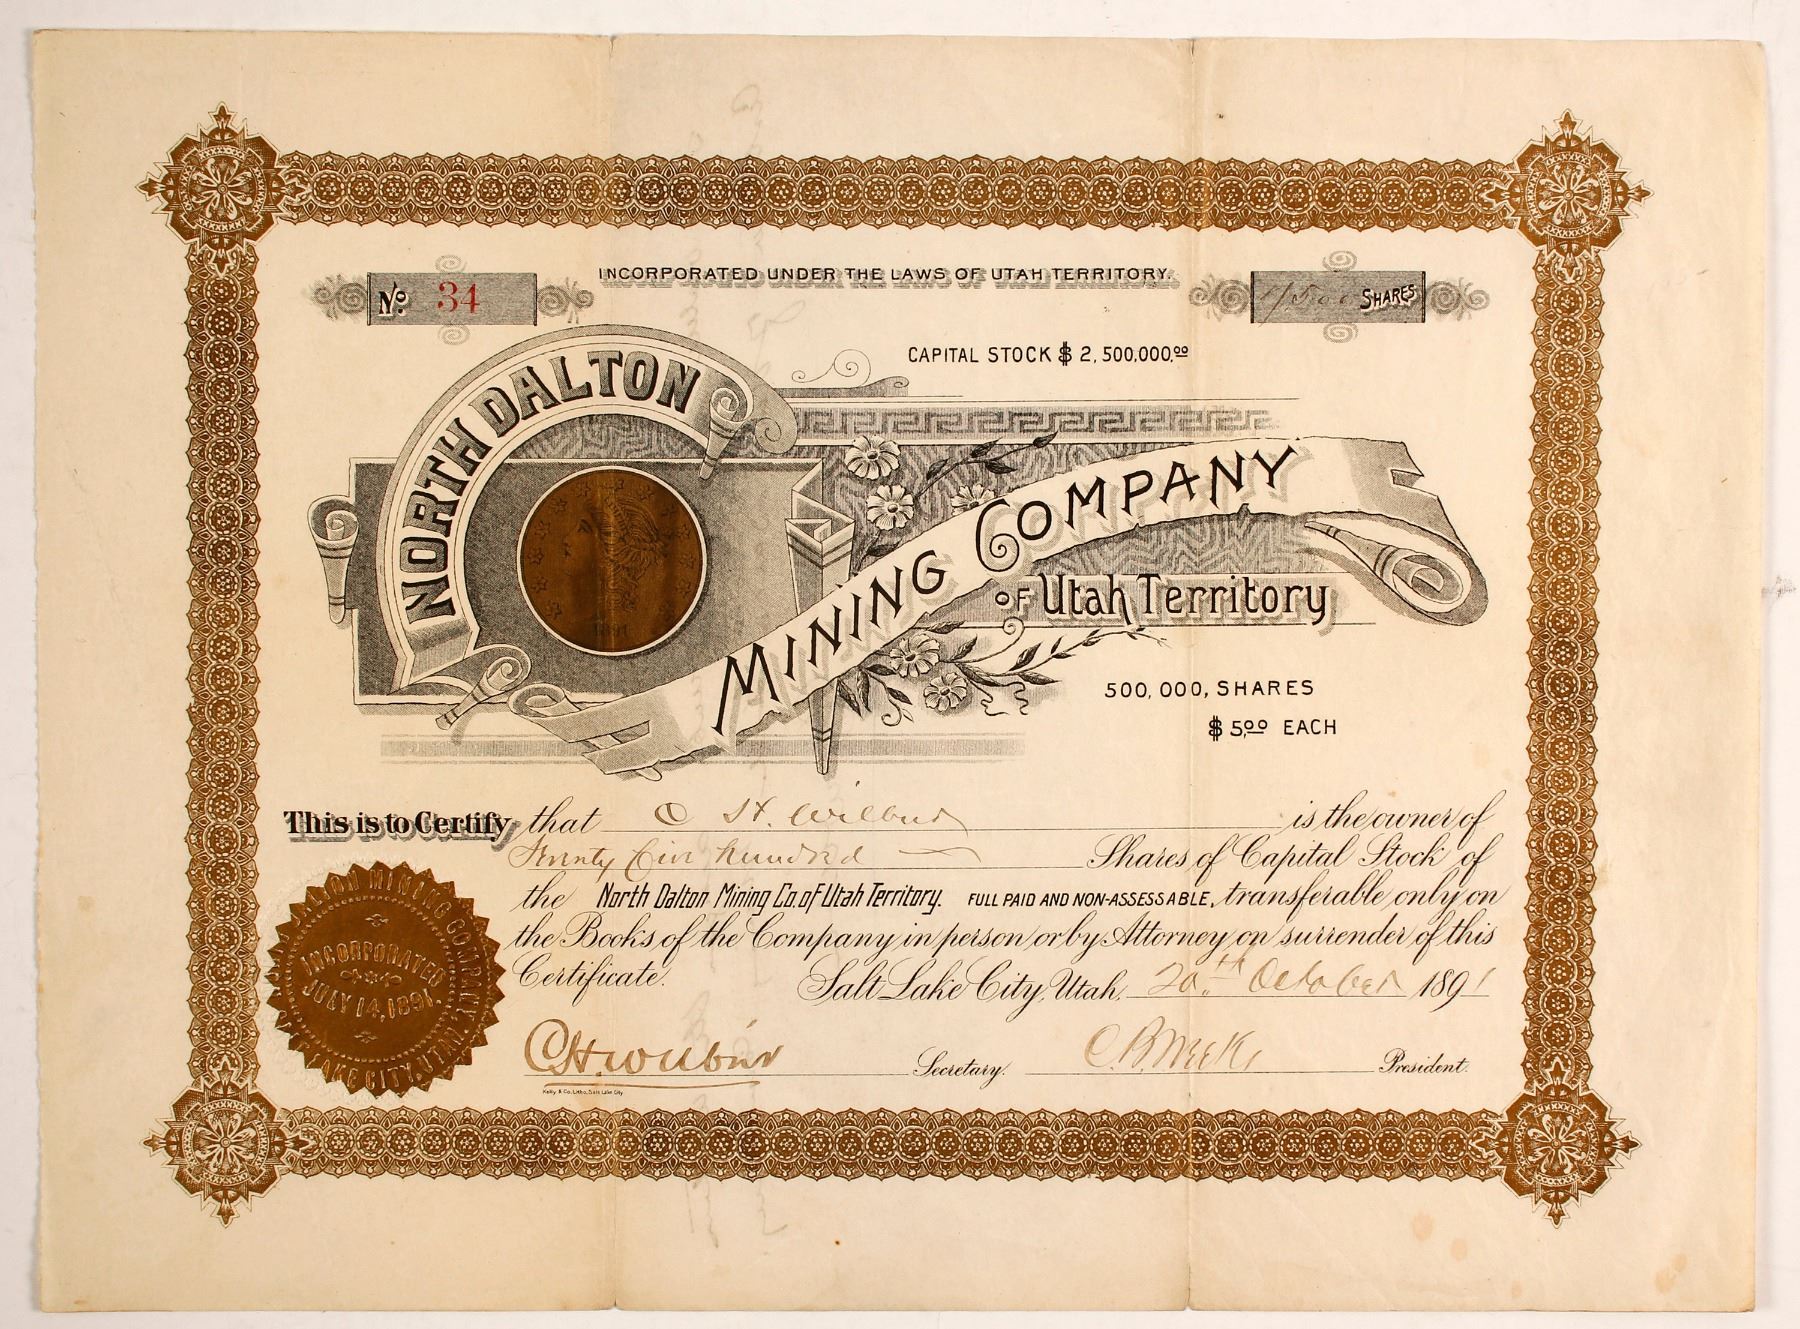 INCORPORATED UNDER THE LAWS OF UTAH TERRITORY.
No. 34
SHARES
CAPITAL STOCK $ 2,500,000.00
NORTH DALTON
MINING COMPANY
OF Utah Territory
1891
500,000, SHARES
$ 5.00 EACH
This is to Certify that C H. Wilbur is the owner of
Five hundred Shares of Capital Stock of
the North Dalton Mining Co. of Utah Territory. FULL PAID AND NON-ASSESSABLE, transferable only on
the Books of the Company in person or by Attorney on surrender of this
Certificate. Salt Lake City, Utah, 20.th October 1891
DALTON MINING COMPANY,
INCORPORATED
JULY 14, 1891.
LAKE CITY, UTAH.
C H. Wilbur Secretary. C. B. Meek President.
Kelly & Co. Litho. Salt Lake City